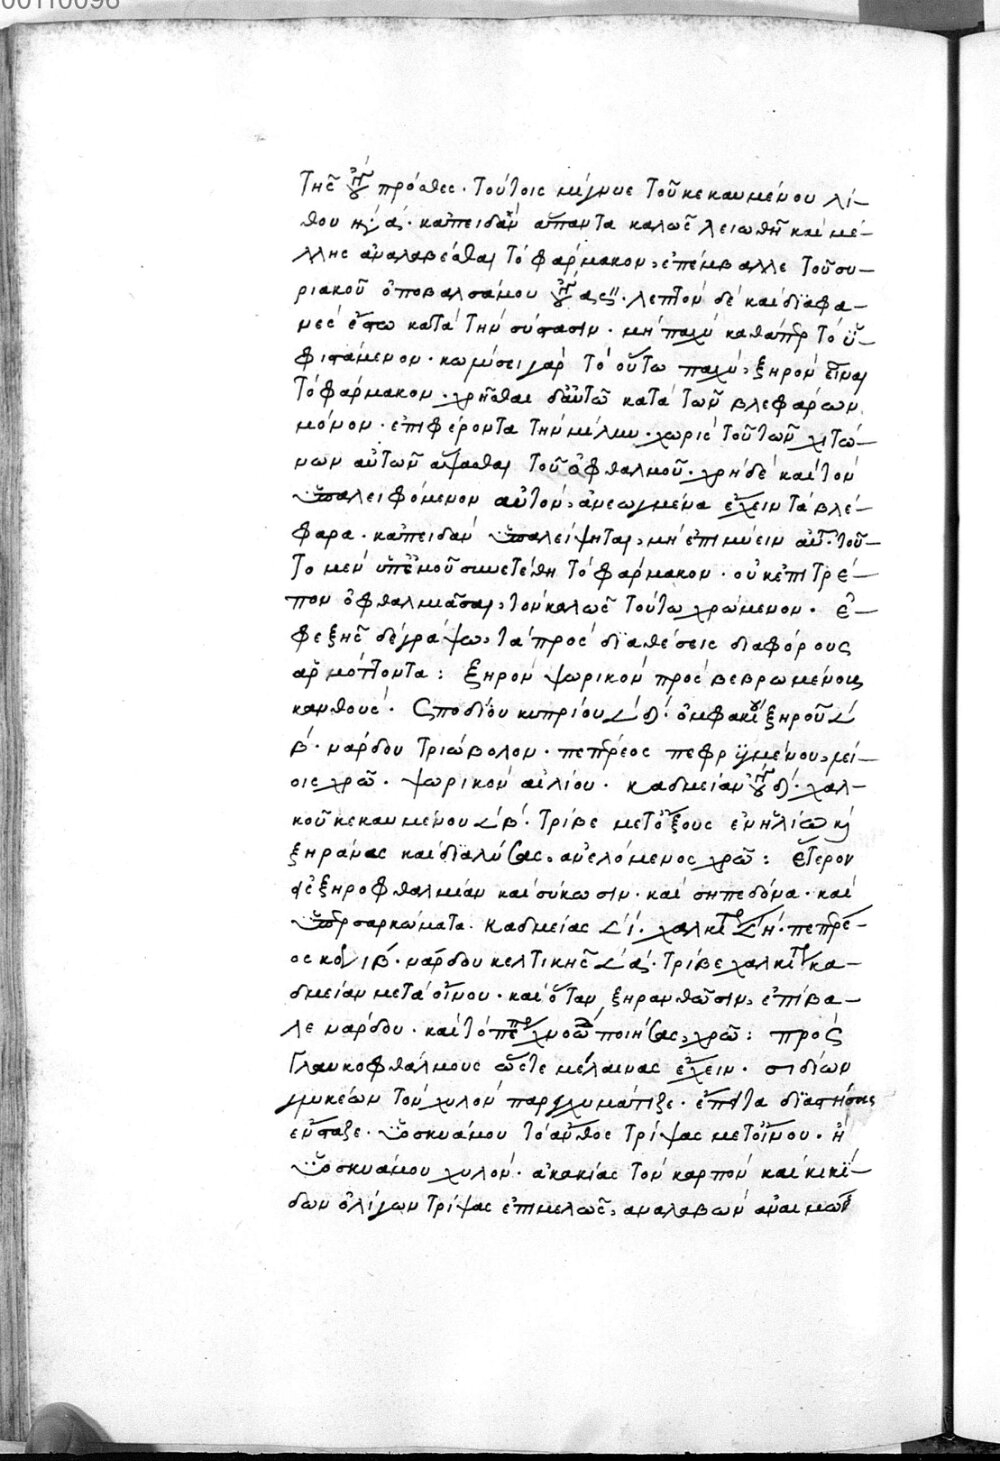 00110096
τῆς πρόσθες· τούτοις μίγνυε τοῦ κεκαυμένου λί-
θου ἡ α΄· κἀπειδὰν ἅπαντα καλῶς λειωθῆ καὶ μέ-
λλης ἀναλαβέσθαι τὸ φάρμακον, ἐπέμβαλλε τοῦ συ-
ριακοῦ ὀποβαλσάμου · λεπτὸν δὲ καὶ διαφα-
νὲς ἔστω κατὰ τὴν σύστασιν· μὴ παχὺ καθάπερ τὸ ὑ-
φιστάμενον· κωλύσει γὰρ τὸ οὕτω παχὺ, ξηρὸν εἶναι
τὸ φάρμακον· χρῆσθαι δ' αὐτῶ κατὰ τῶν βλεφάρων
μόνον· ἐπιφέροντα τὴν μήλην· χωρὶς τοῦ τῶν χιτώ-
νων αὐτῶν ἅψασθαι τοῦ ὀφθαλμοῦ· χρὴ δὲ καὶ τὸν
ὑπαλειφόμενον αὐτὸν, ἀνεωγμένα ἔχειν τὰ βλέ-
φαρα· κἀπειδὰν ὑπαλείψηται, μὴ ἐπιμύειν αὐτ· τοῦ-
το μὲν ὑπ' ἐμοῦ συνετέθη τὸ φάρμακον· οὐκ ἐπιτρέ-
πον ὀφθαλμιᾶσαι, τὸν καλῶς τούτω χρώμενον· ἐ-
φεξῆς δὲ γράψω, τὰ πρὸς διαθέσεις διαφόρους
ἁρμόττοντα: ξηρὸν ψωρικὸν πρὸς βεβρωμένους
κανθούς· Σποδίου κυπρίου ∠ δ΄· ὀμφακί ξηροῦ ∠
β΄· νάρδου τριώβολον· πεπέρεος πεφρυγμένου, λεί-
οις χρῶ· ψωρικὸν αἰλίου· καδμείαν δ΄· χαλ-
κοῦ κεκαυμένου ∠ β΄· τρίβε μετ' ὄξους ἐν ἡλίω κ
ξηράνας καὶ διαλύσας, ἀνελόμενος χρῶ: ἕτερον
ξηροφθαλμίαν καὶ σύκωσιν· καὶ σηπεδόνα· καὶ
ὑπερσαρκώματα· καδμείας ∠ ι΄· χαλκίτ ∠ η΄· πεπέρε-
ος κό ιβ΄· νάρδου κελτικῆς ∠ α΄· τρίβε χαλκίτ κα-
δμείαν μετὰ οἴνου· καὶ ὅταν ξηρανθῶσιν, ἐπίβα-
λε νάρδου· καὶ τὸ πέπερ χνοῶ ποιήσας, χρῶ: πρὸς
γλαυκοφθάλμους ὥστε μέλαινας ἔχειν· σιδίων
γλυκέων τὸν χυλὸν παρεγχυμάτιζε· ἔπειτα διαστήσας
ἔνσταξε· ὑοσκυάμου τὸ ἄνθος τρίψας μετ' οἴνου· ἢ
ὑοσκυάμου χυλὸν· ἀκακίας τὸν καρπὸν καὶ κικί-
δων ὀλίγων τρίψας ἐπιμελῶς, ἀναλαβὼν